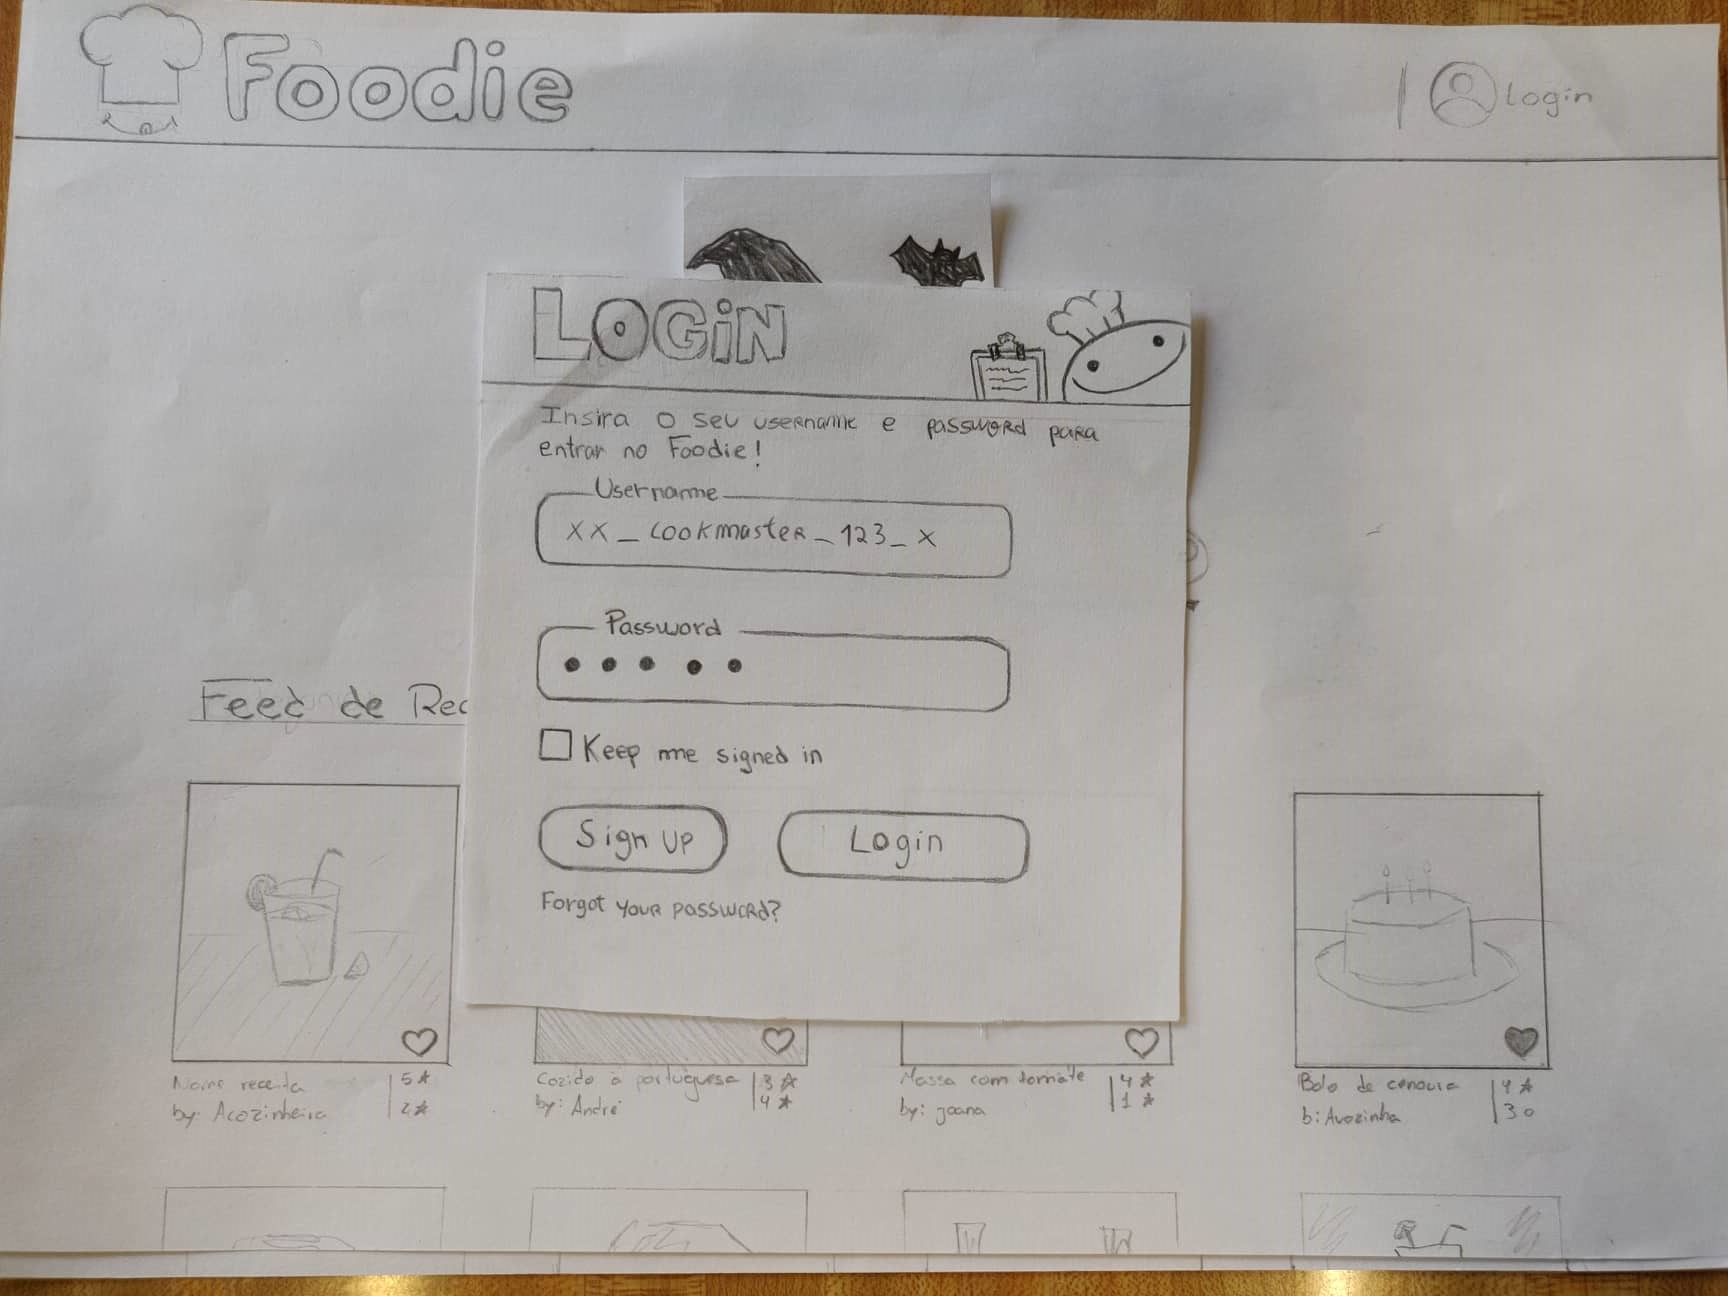 Foodie
Login
LOGiN
Insira o seu username e password para
entrar no Foodie!
Username
xx_cookmaster_123_x
Password
Keep me signed in
Sign up
Login
Forgot your password?
Feed de Rec
Nome receita | 5★
by: Acozinheira | 2★
Cozido à portuguesa | 3★
by: André | 4★
Massa com tomate | 4★
by: joana | 1★
Bolo de cenoura | 4★
b: Avozinha | 30